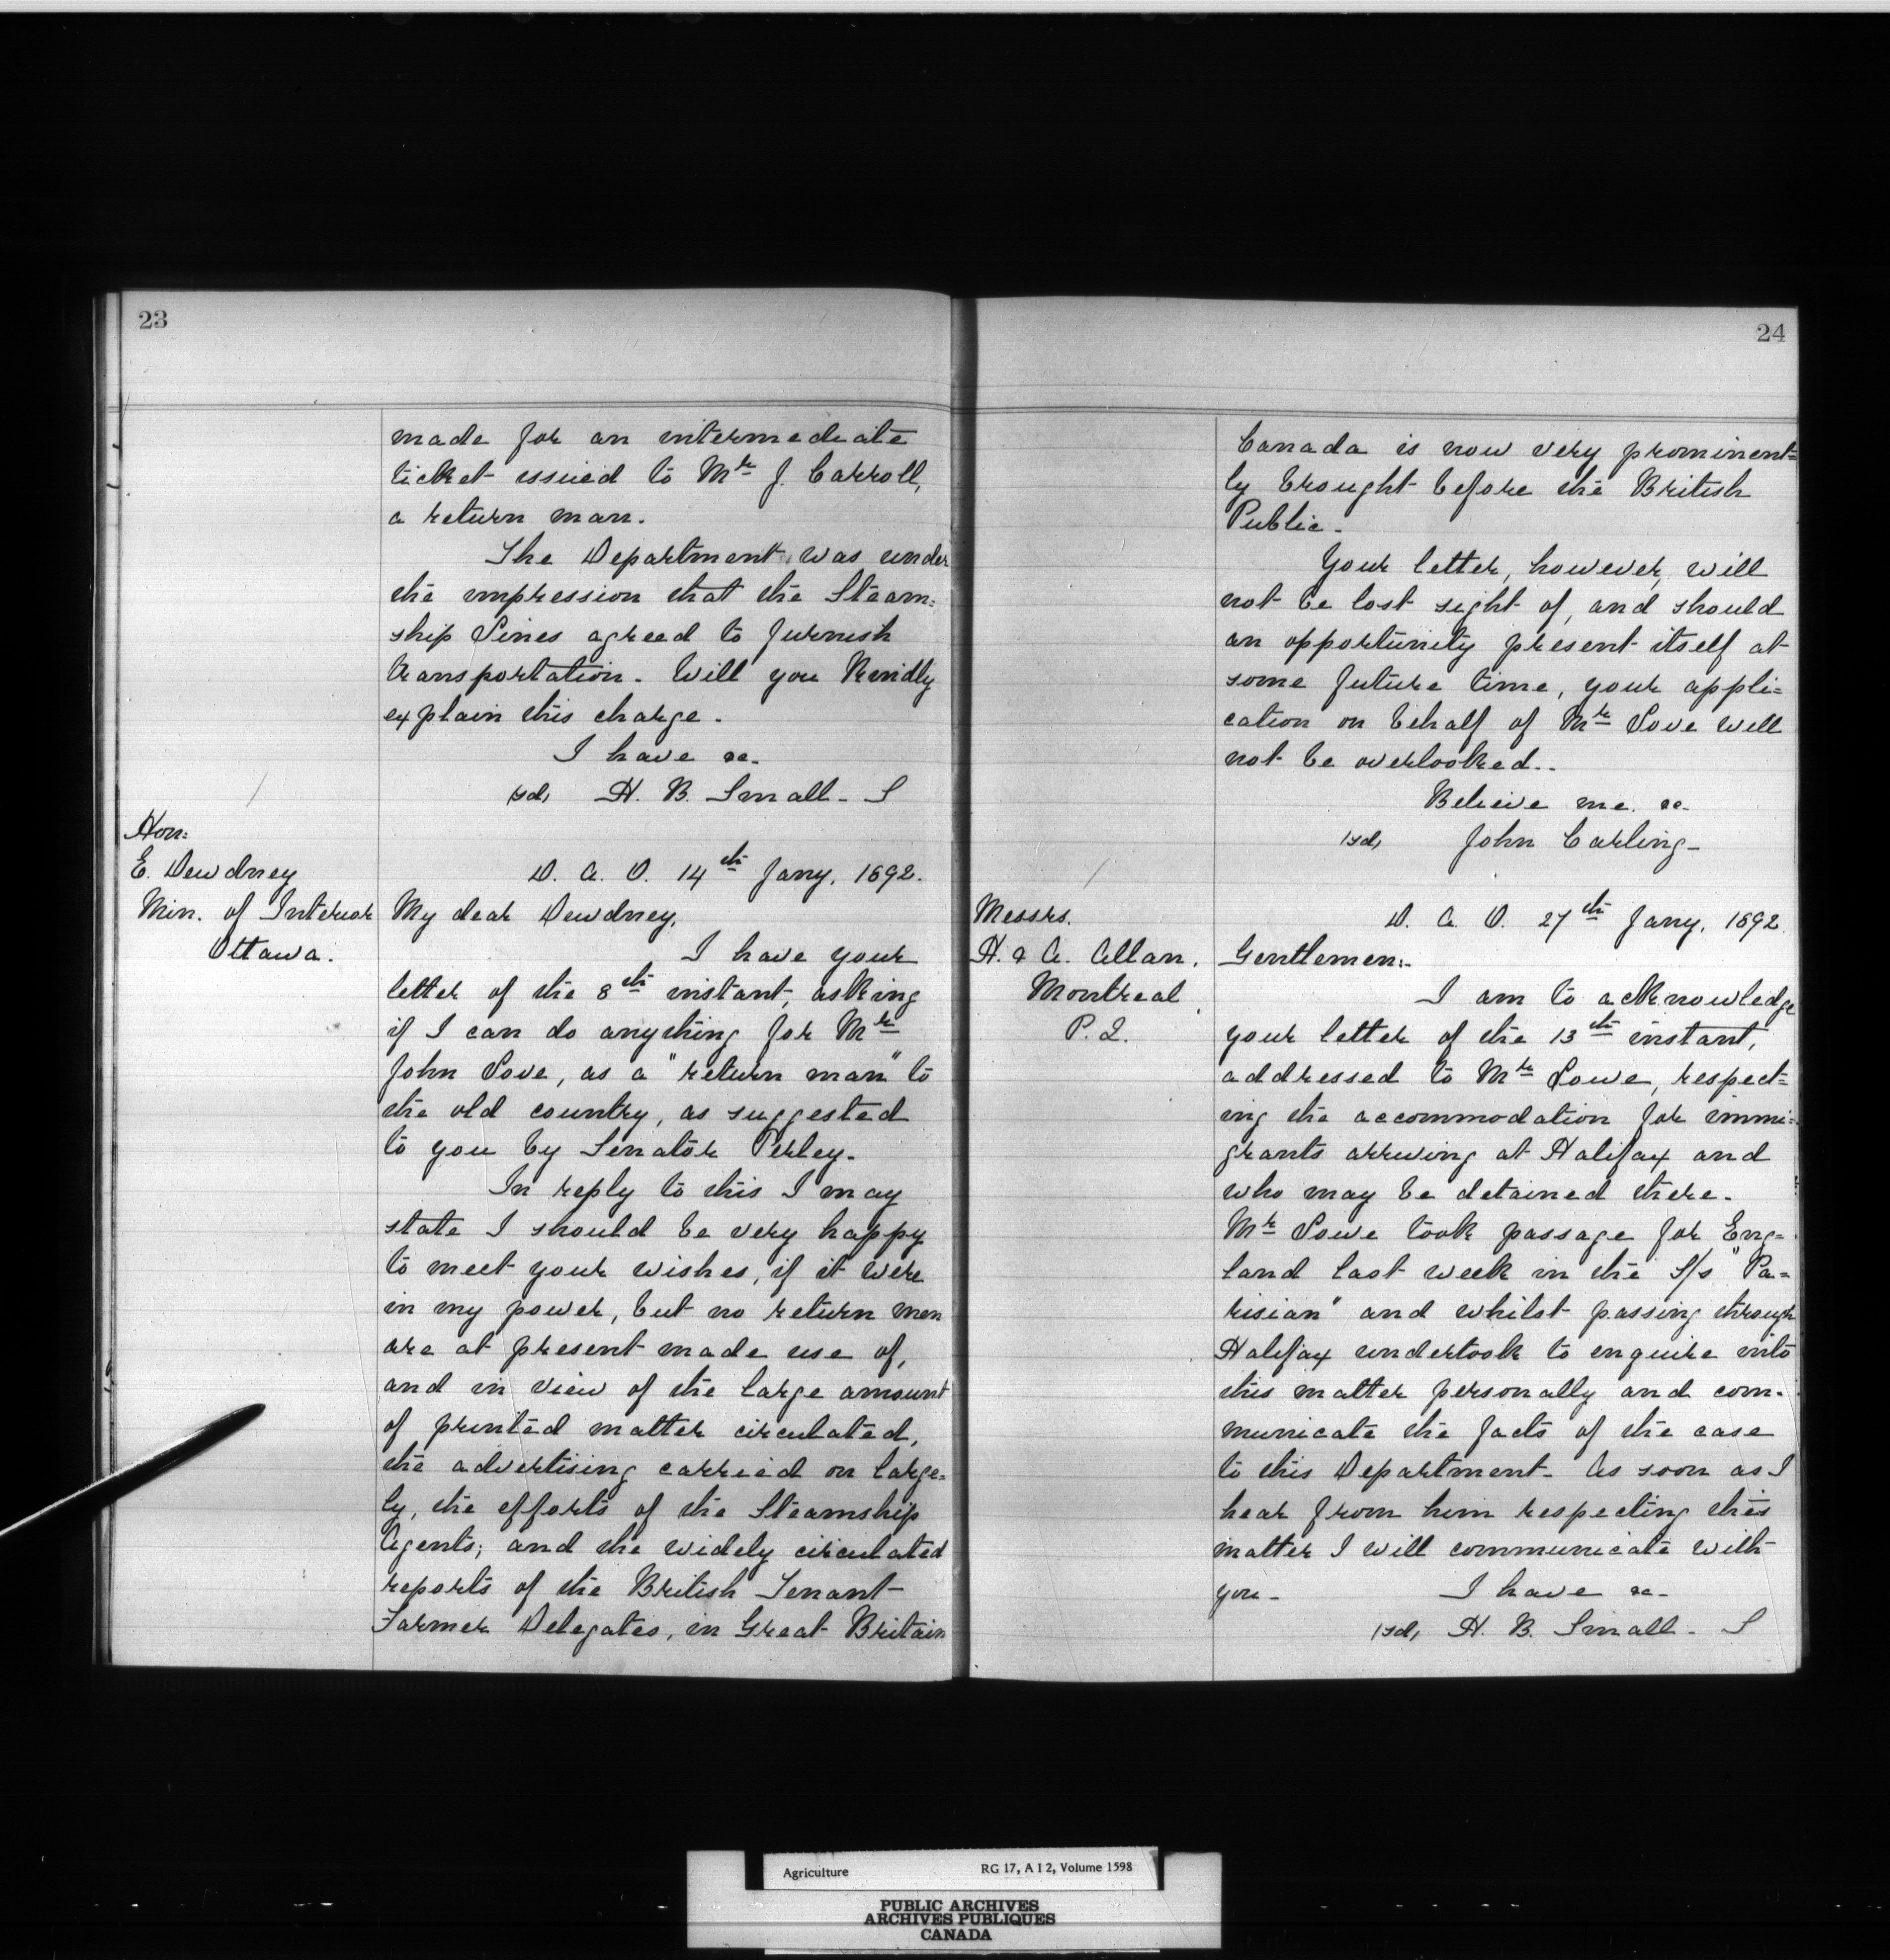 23
made for an intermediate
ticket issued to Mr J. Carroll,
a return man.
The Department was under
the impression that the Steam=
ship Lines agreed to furnish
transportation. Will you kindly
explain this charge.
I have &c-
sd, H. B. Small - S
Hon:
E. Dewdney
Min. of Interior
Ottawa.
D. A. O. 14th Jany, 1892.
My dear Dewdney,
I have your
letter of the 8th instant, asking
if I can do anything for Mr
John Love, as a "return man" to
the old country, as suggested
to you by Senator Perley.
In reply to this I may
state I should be very happy
to meet your wishes, if it were
in my power, but no return men
are at present made use of,
and in view of the large amount
of printed matter circulated,
the advertising carried on large=
ly, the efforts of the Steamship
Agents; and the widely circulated
reports of the British Tenant-
Farmer Delegates, in Great Britain
24
Canada is now very prominent=
ly brought before the British
Public.
Your letter, however, will
not be lost sight of, and should
an opportunity present itself at
some future time, your appli=
cation on behalf of Mr Love will
not be overlooked..
Believe me. &c-
sd, John Carling-
Messrs.
H. & A. Allan,
Montreal,
P. Q.
D. A. O. 27th Jany, 1892
Gentlemen:-
I am to acknowledge
your letter of the 13th instant,
addressed to Mr Lowe, respect=
ing the accommodation for immi=
grants arriving at Halifax and
who may be detained there.
Mr Lowe took passage for Eng=
land last week in the S/s "Pa=
risian" and whilst passing through
Halifax undertook to enquire into
this matter personally and com-
municate the facts of the case
to this Department. As soon as I
hear from him respecting this
matter I will communicate with
you- I have &c-
sd, H. B. Small - S
Agriculture RG 17, A I 2, Volume 1598
PUBLIC ARCHIVES
ARCHIVES PUBLIQUES
CANADA